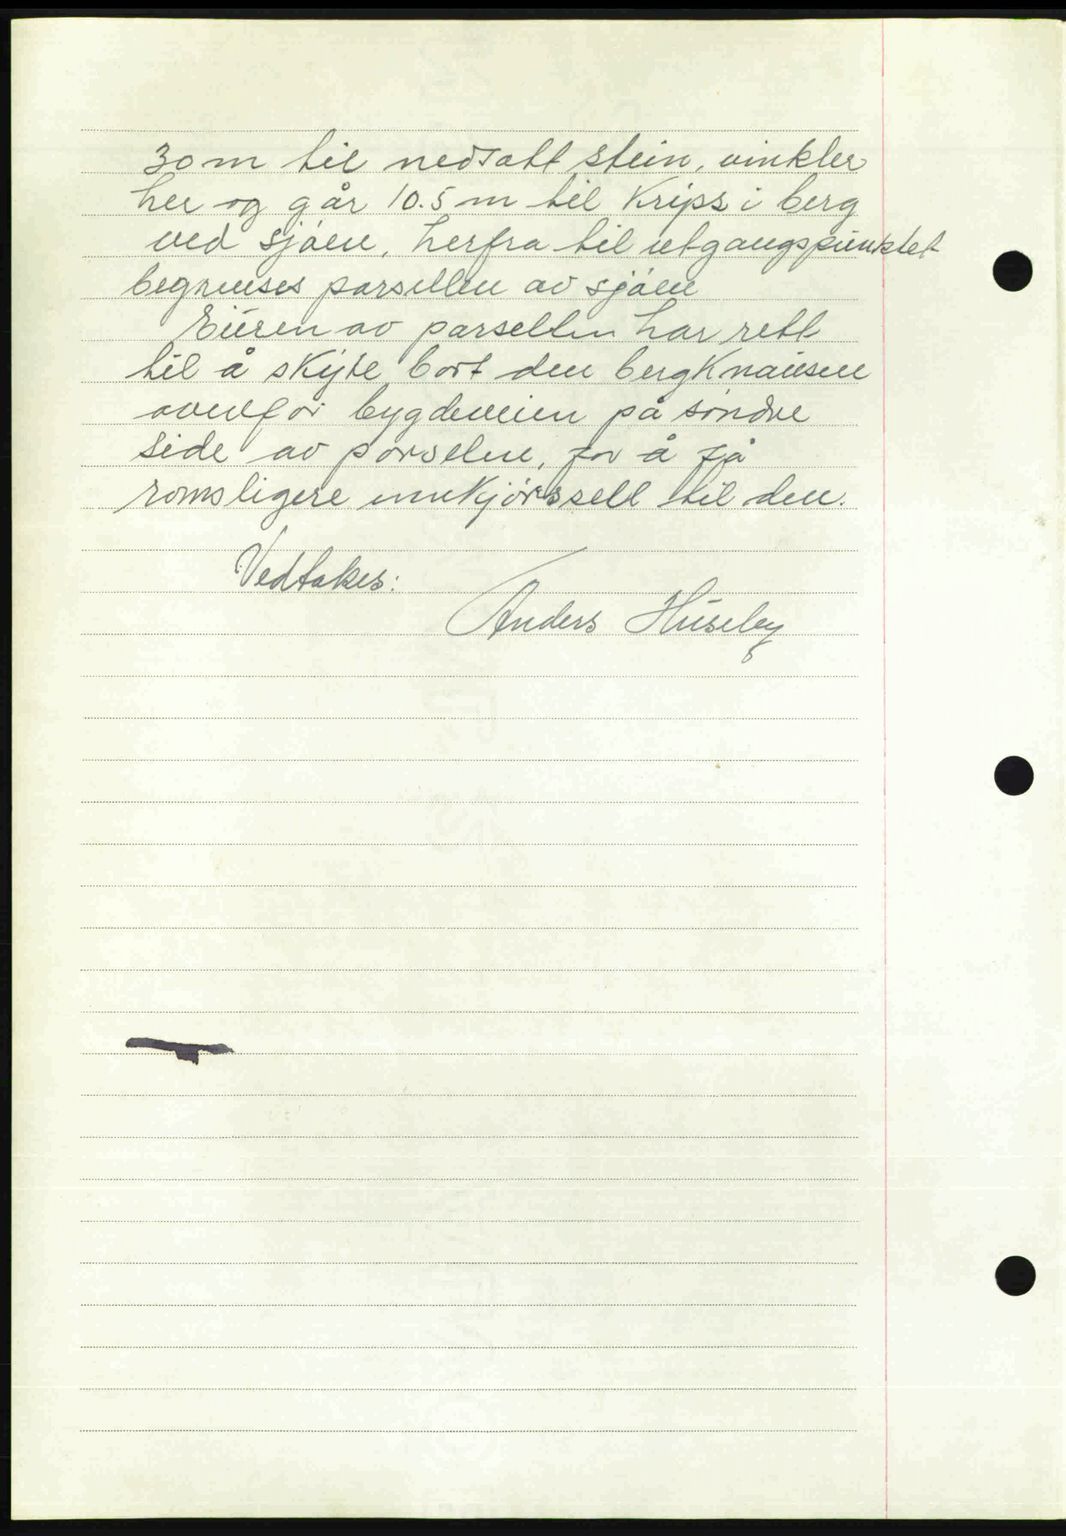 30 m til nedsatt stein, vinkler
her og går 10.5 m til Kripss i berg
ved sjøen, herfra til utgangspunktet
begrenses parsellen av sjøen
Eieren av parsellen har rett
til å skyte bort den bergknausen
ovenfor bygdeveien på søndre
side av parselen, for å få
romsligere innkjørssell til den.
Vedtakes:
Anders Huseby